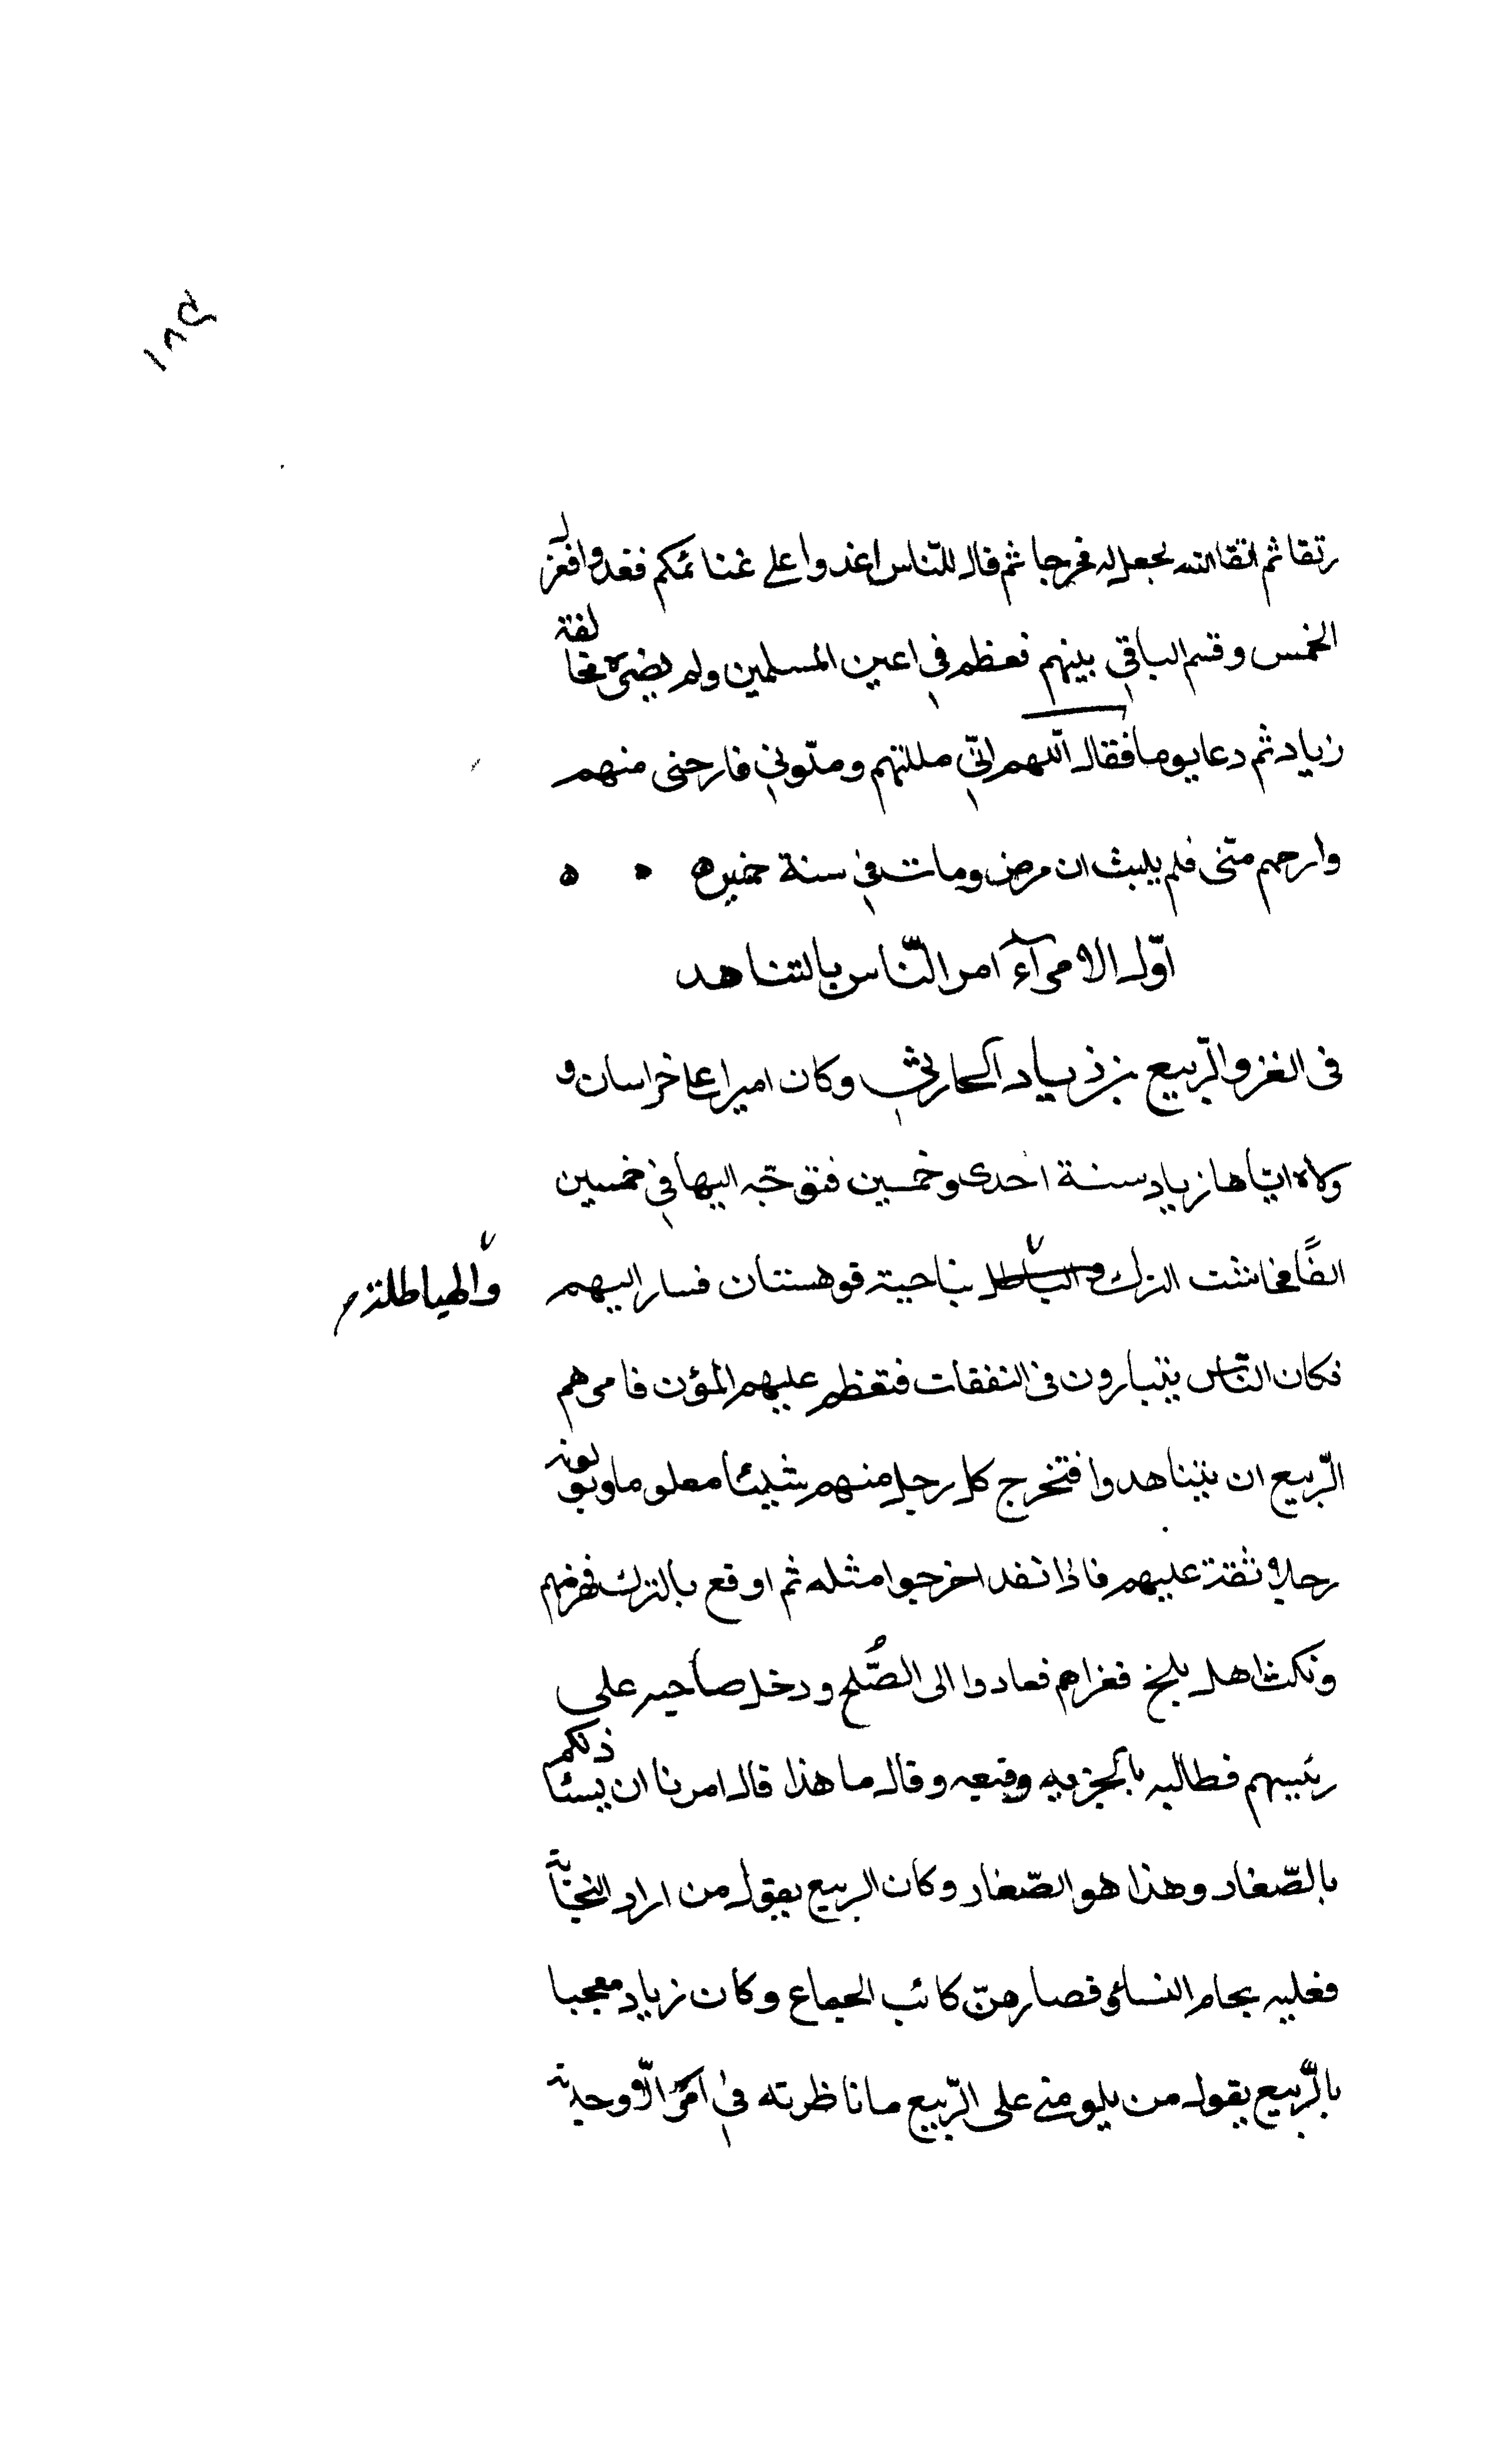 ١٧٥
رتقا ثم اتقا الله لجعل له مخرجا ثم قال للناس اغدوا على غنائمكم فغدوا فعزل
الخمس وقسم الباقي بينهم فعظم في اعين المسلمين ولم يضره مخالفة
زياد ثم دعا يوما فقال اللهم اني مللتهم وملوني فارحني منهم
وارحهم منّي فلم يلبث ان مرض ومات في سنة
اوّل الامرآء امر النّاس بالتناهد
في الغزو الرّبيع بن زياد الحارثي وكان اميرا على خراسان و
ولاه ايّاها زياد سنة احدى وخمسين فتوجّه اليها في خمسين
الفًا فجاشت الترك والهياطلة بناحية قوهستان فسار اليهم
فكان النّاس يتبارون في النفقات فتعظم عليهم المؤن فامرهم
الرّبيع ان يتناهدوا فتخرج كل رجل منهم شيئا معلوما ويولونه
رجلا ثقة عليهم فاذا نفد اخرجوا مثله ثم اوقع بالترك فهزمهم
ونكث اهل بلخ فغزاهم فعادوا الى الصُّلح ودخل صاحبه على
رئيسهم فطالبه بالجزيه وقال ما هذا قال امرنا ان
بالصّغار وهذا هو الصّغار وكان الربيع يقول من اراد النجابة
فعليه بحام النساء وكان زياد معجبا
بالرّبيع يقول من يلومني على الرّبيع ما ناظرته في امر الّا وجدته